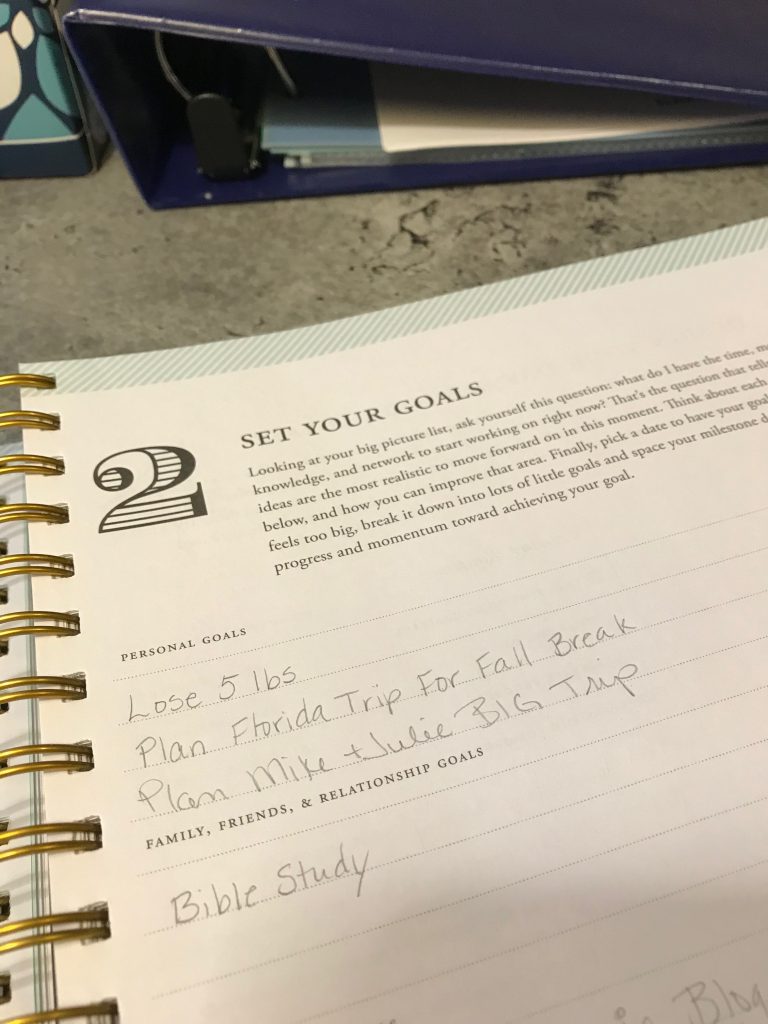 2
SET YOUR GOALS
Looking at your big picture list, ask yourself this question: what do I have the time,
knowledge, and network to start working on right now? That's the question that
ideas are the most realistic to move forward on in this moment. Think about each
below, and how you can improve that area. Finally, pick a date to have your
feels too big, break it down into lots of little goals and space your milestone
progress and momentum toward achieving your goal.
PERSONAL GOALS
Lose 5 lbs
Plan Florida Trip For Fall Break
Plan Mike + Julie BIG Trip
FAMILY, FRIENDS, & RELATIONSHIP GOALS
Bible Study
Blog